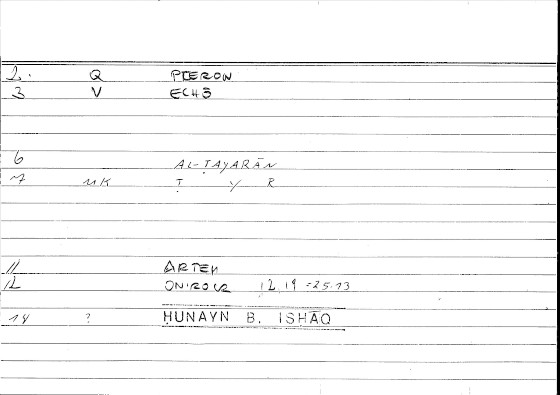 2. Q PTERON
3 V ECHS
6 AL-ṬAYARĀN
7 MK Ṭ Y R
11 ARTEM
12 ONIROCR 12,19-25.13
14 ? HUNAYN B. ISHĀQ